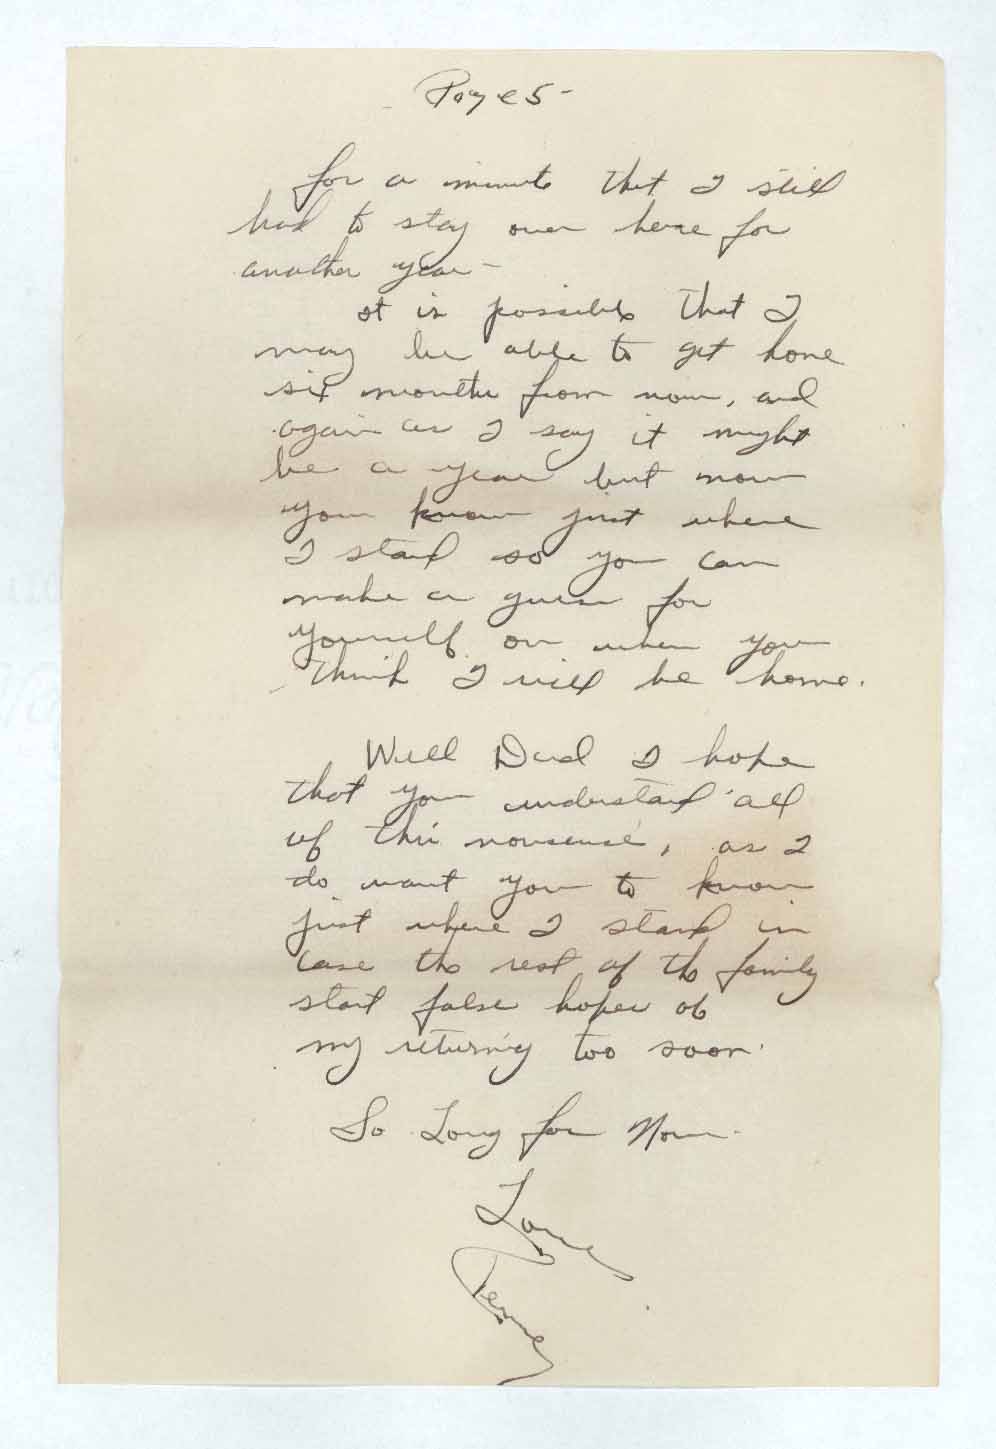 Page 5-
for a minute that I still
had to stay over here for
another year-
It is possible that I
may be able to get home
six months from now, and
again as I say it might
be a year but now
you know just where
I stand so you can
make a guess for
yourself on when you
think I will be home.
Well Dad I hope
that you understand all
of this nonsense, as I
do want you to know
just where I stand in
case the rest of the family
start false hopes of
my returning too soon.
So Long for Now.
Love